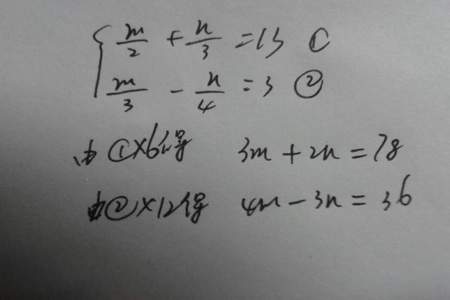 { m/2 + n/3 = 13 ①
m/3 - n/4 = 3 ②
由①×6得 3m + 2n = 78
由②×12得 4m - 3n = 36